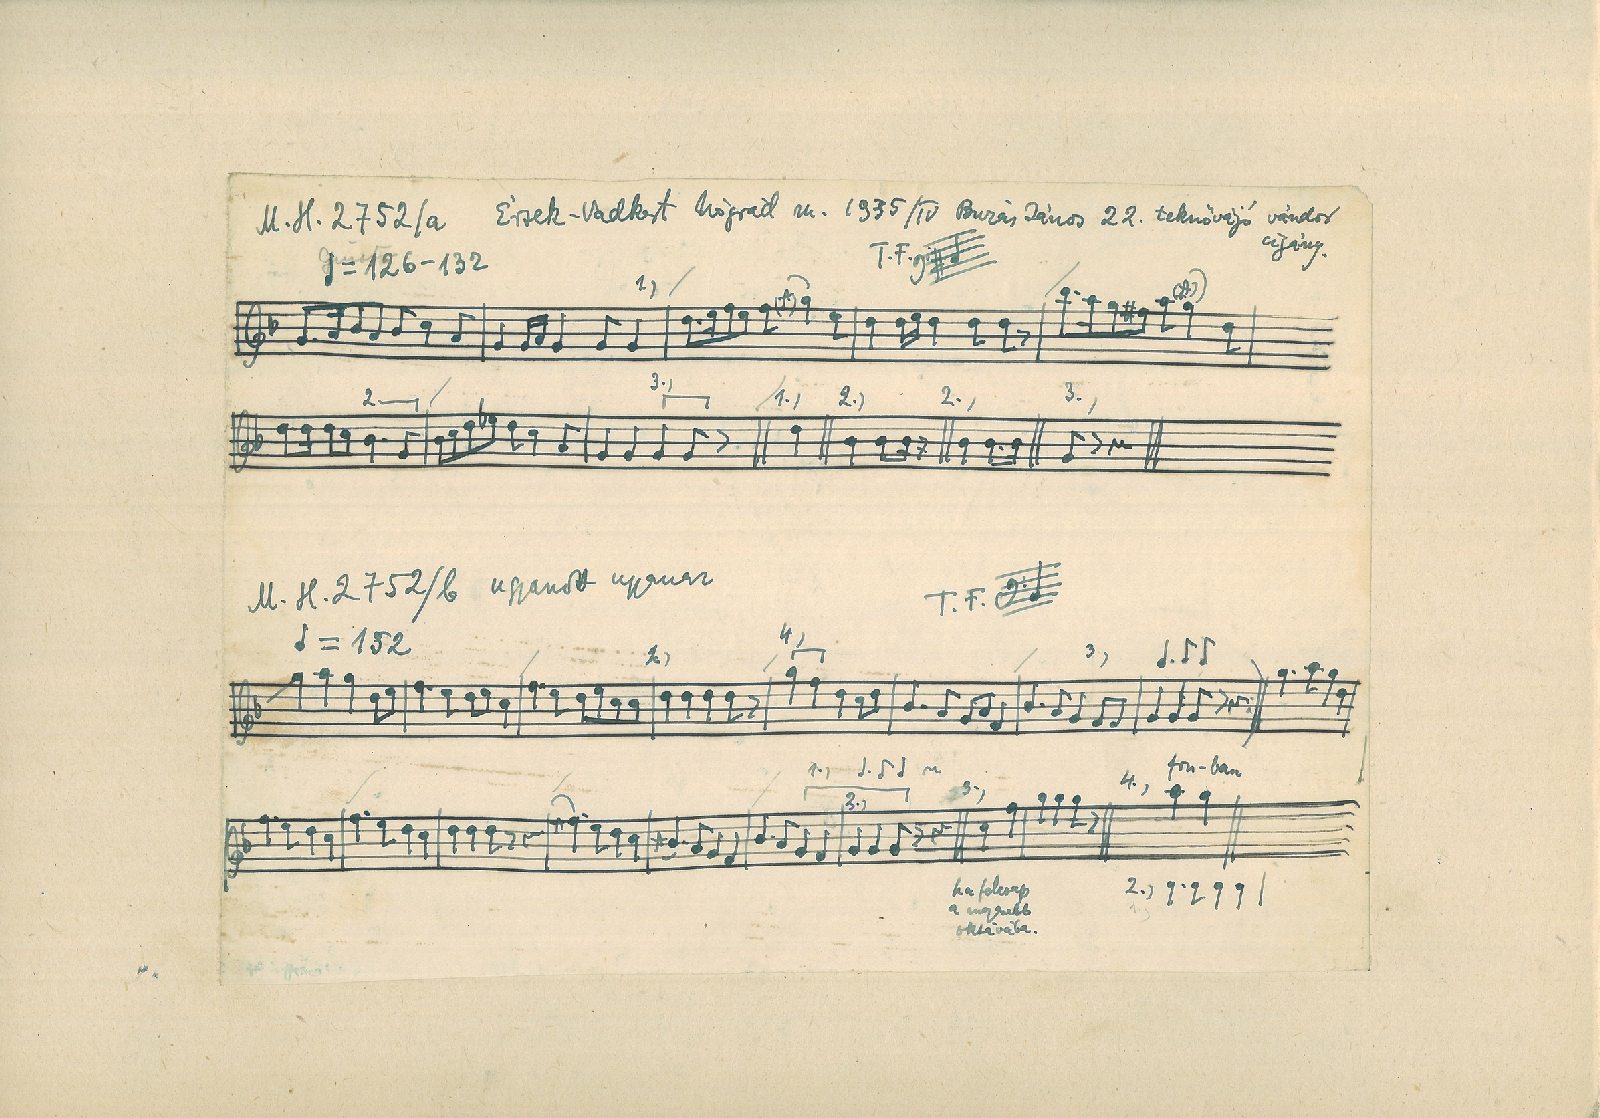 M.H. 2752/a Érsek-Vadkert Nógrád m. 1935/IV Burás János 22. teknővájó vándor
cigány.
♩ = 126-132
T.F.
1.)
2.
3.,
1.,
2.,
2.,
3.,
M.H. 2752/b ugyanott ugyanaz
T.F.
♩ = 152
2.)
4.)
3.)
1.,
3.,
3.,
4., fon-ban
ha fölcsap
a magasabb
oktávába.
2.,